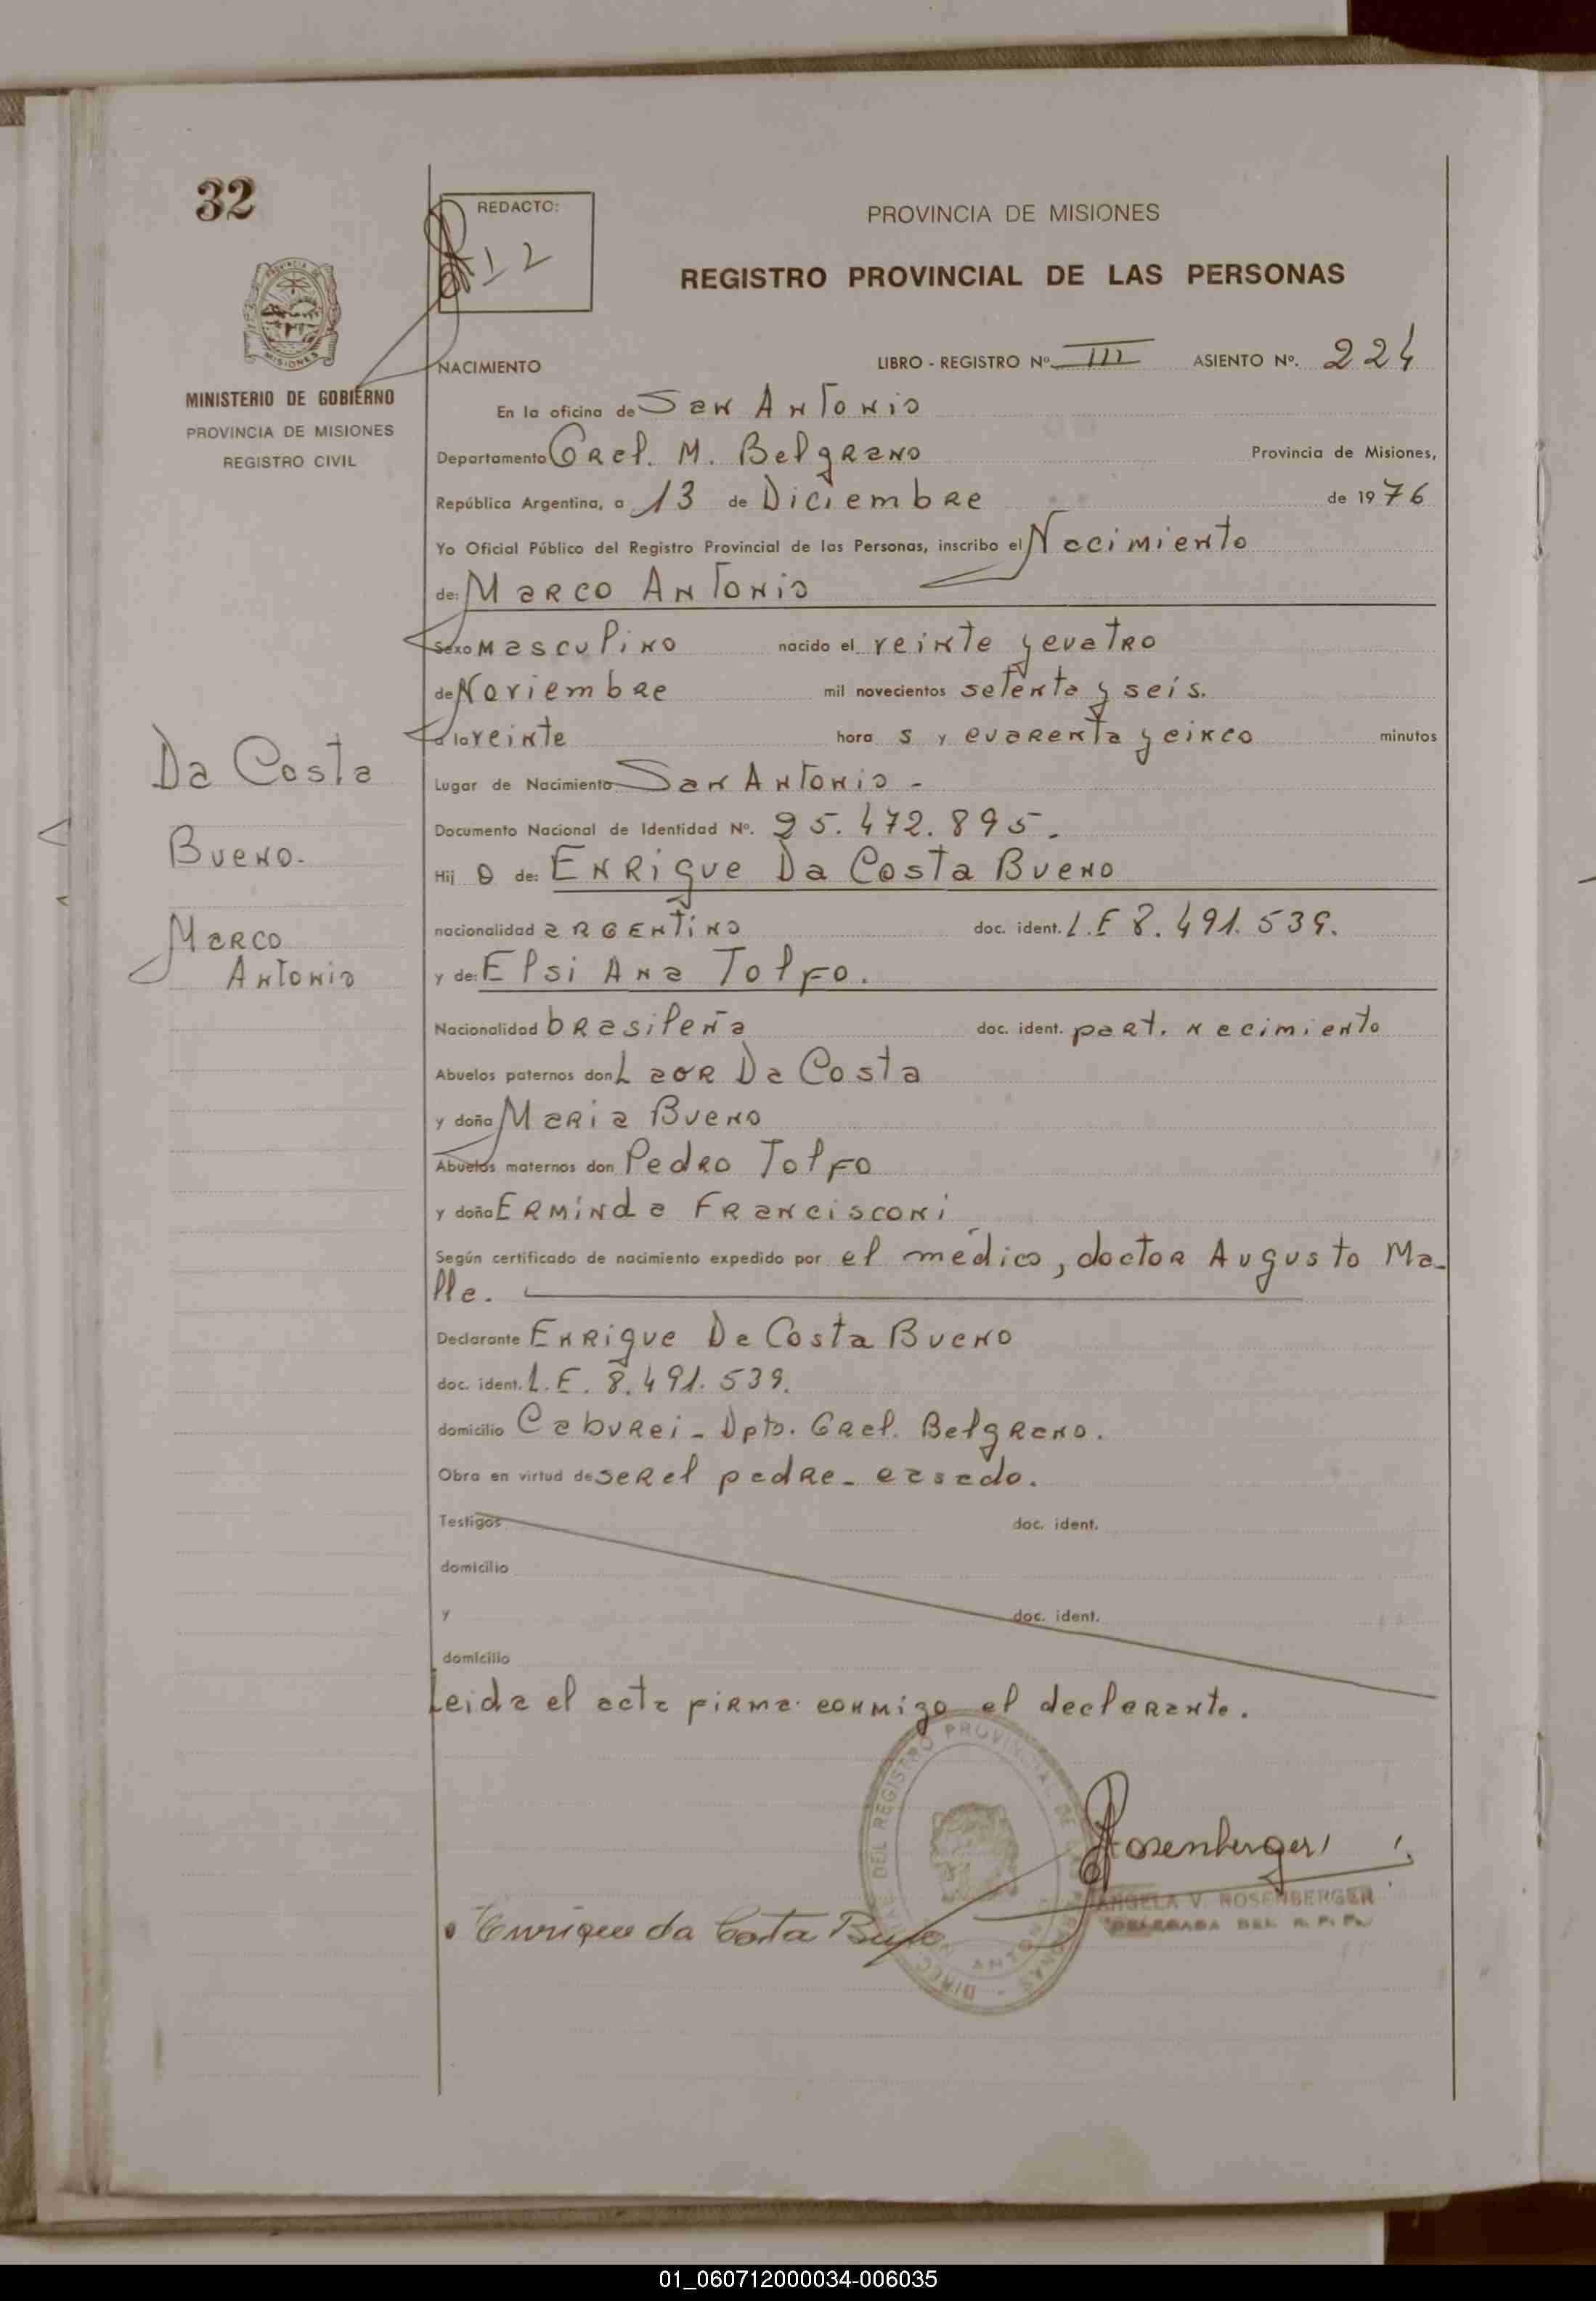 32
REDACTO:
12
PROVINCIA DE MISIONES
REGISTRO PROVINCIAL DE LAS PERSONAS
PROVINCIA DE MISIONES
MINISTERIO DE GOBIERNO
PROVINCIA DE MISIONES
REGISTRO CIVIL
NACIMIENTO LIBRO - REGISTRO Nº III ASIENTO Nº. 224
En la oficina de San Antonio
Departamento Gral. M. Belgrano Provincia de Misiones,
República Argentina, a 13 de Diciembre de 1976
Yo Oficial Público del Registro Provincial de las Personas, inscribo el Nacimiento
de: Marco Antonio
Sexo masculino nacido el veinte y cuatro
de Noviembre mil novecientos setenta y seis.
a la veinte hora s y cuarenta y cinco minutos
Lugar de Nacimiento San Antonio -
Documento Nacional de Identidad Nº. 25.472.895.
Hij o de: Enrique Da Costa Bueno
nacionalidad argentino doc. ident. L.E 8.491.539.
y de: Elsi Ana Tolfo.
Nacionalidad brasileña doc. ident. part. nacimiento
Abuelos paternos don Laor Da Costa
y doña Maria Bueno
Abuelos maternos don Pedro Tolfo
y doña Erminda Francisconi
Según certificado de nacimiento expedido por el médico, doctor Augusto Ma-
lle.
Declarante Enrique Da Costa Bueno
doc. ident. L.E. 8.491.539.
domicilio Caburei - Dpto. Gral. Belgrano.
Obra en virtud de ser el padre - casado.
Testigos doc. ident.
domicilio
y doc. ident.
domicilio
Leida el acta firma conmigo el declarante.
Da Costa
Bueno.
Marco
Antonio
DIRECC DEL REGISTRO PROVINCIAL DE LAS PERSONAS
Rosenberger
ANGELA V. ROSENBERGER
DELEGADA DEL R. P. P.
Enrique da Costa Bueno
01_060712000034-006035